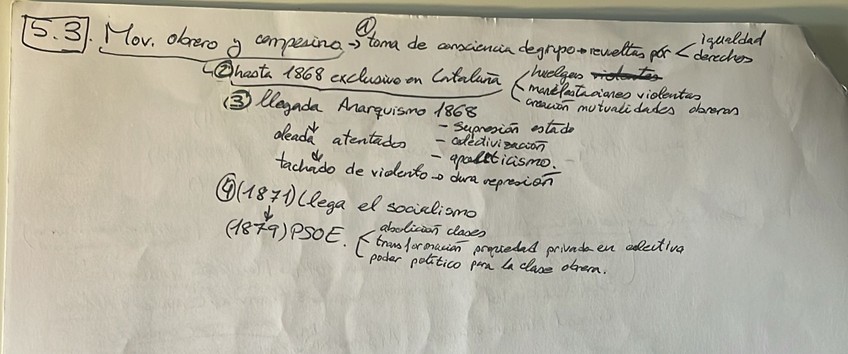 5.3. Mov. obrero y campesino → ① toma de consciencia de grupo → revueltas por < igualdad
derechos
↳ ② hasta 1868 exclusivo en Cataluña < huelgas violentas
manifestaciones violentas
creación mutualidades obreras
③ llegada Anarquismo 1868
- supresión estado
oleada atentados - colectivización
- apoliticismo.
tachado de violento → dura represión
④ (1871) llega el socialismo
(1879) PSOE. < abolición clases
transformación propiedad privada en colectiva
poder político para la clase obrera.